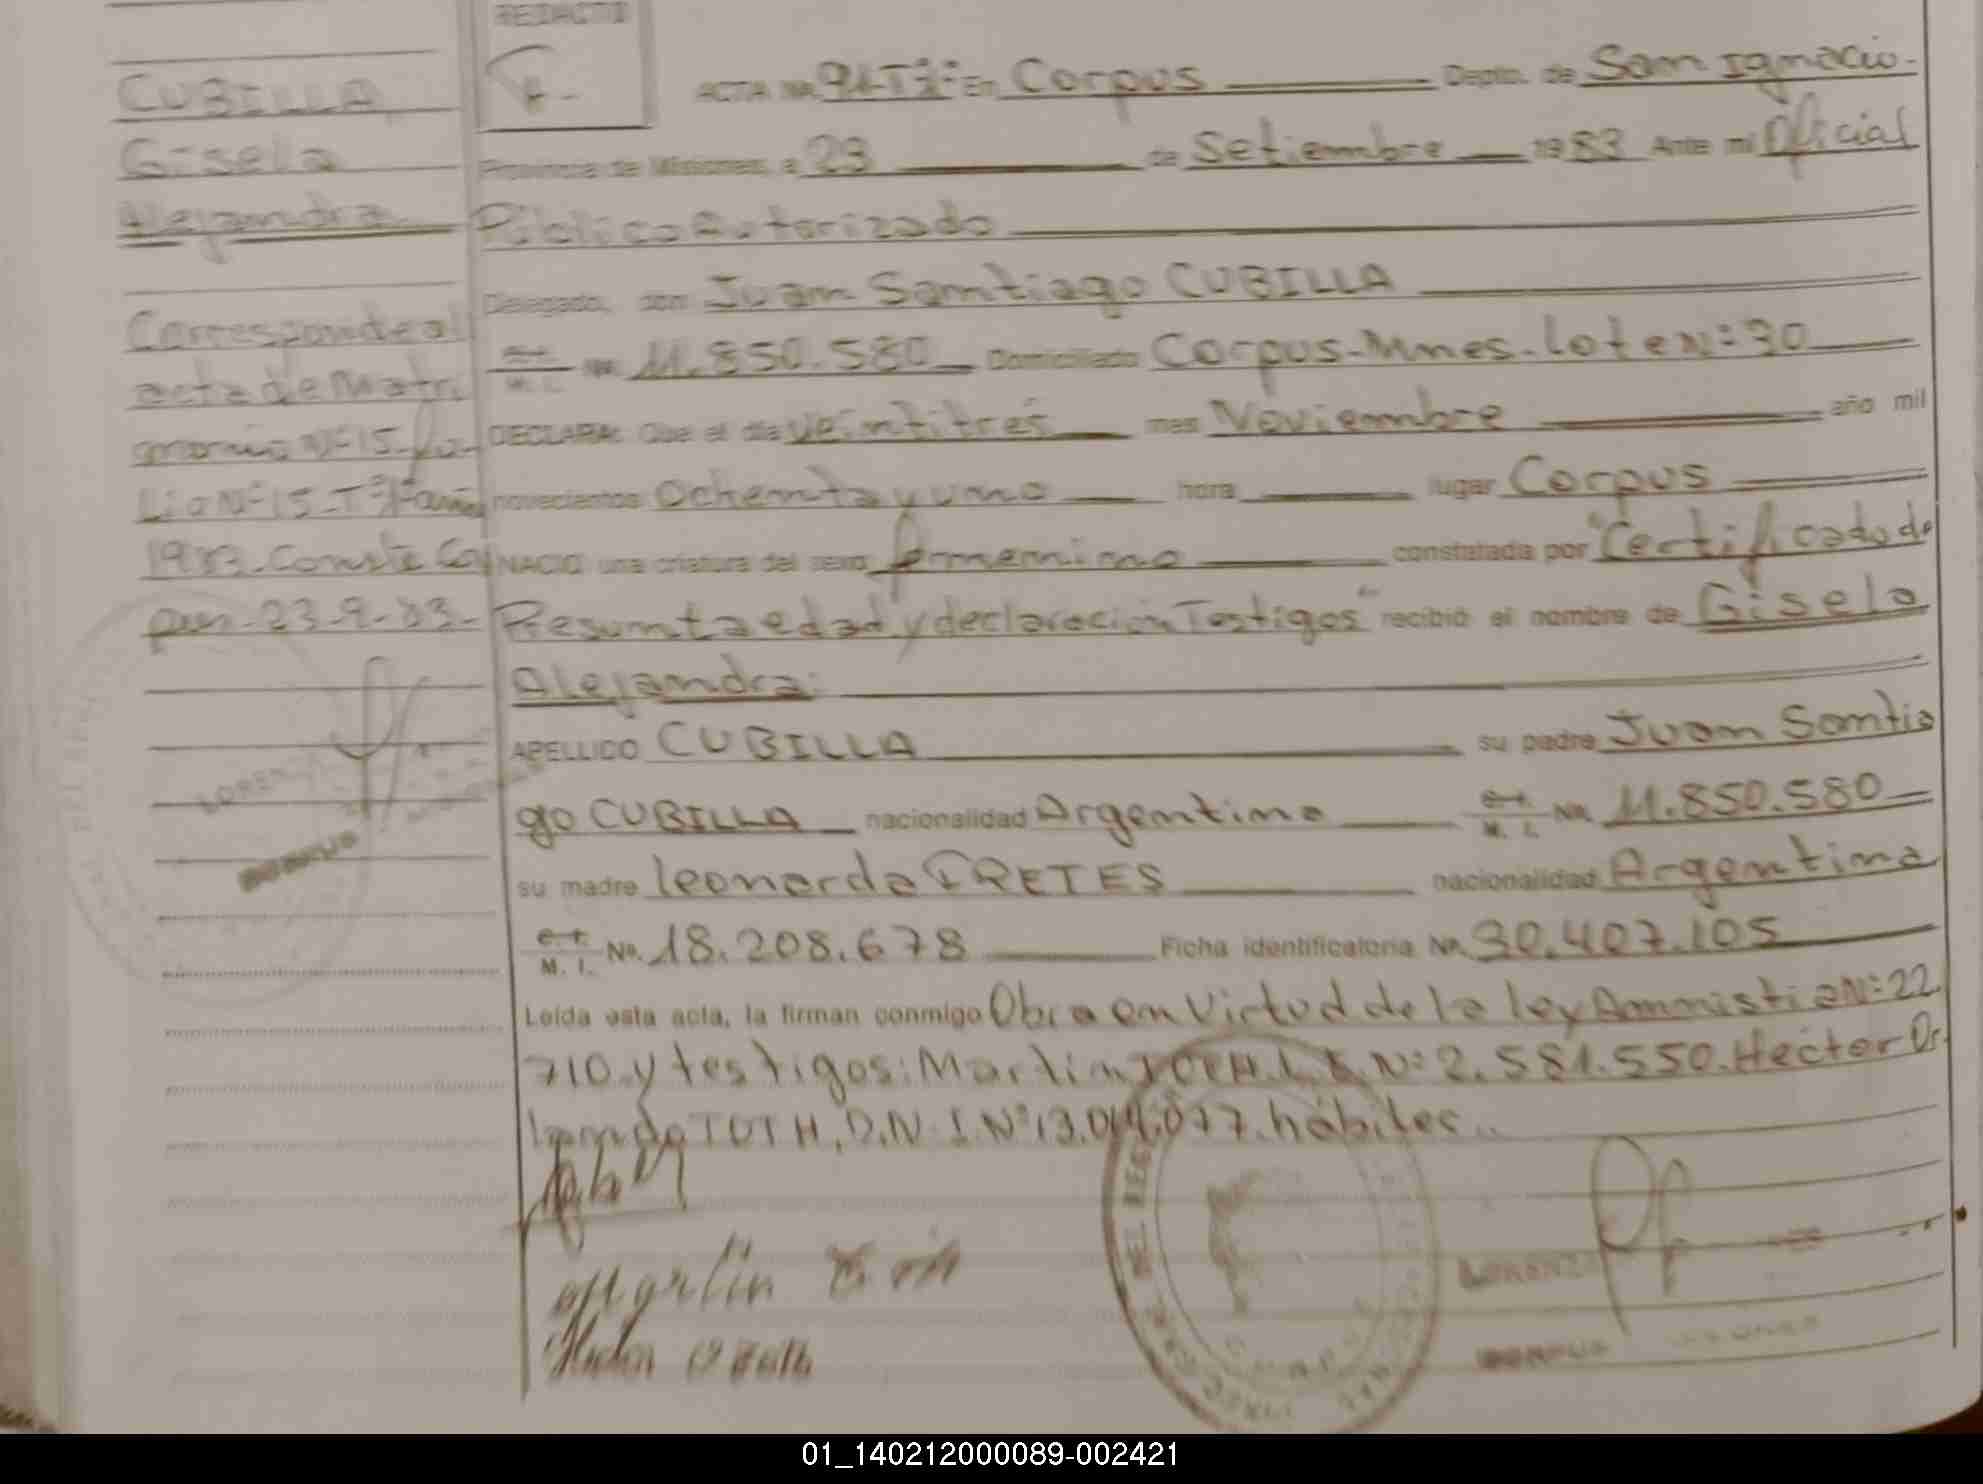 REDACTO
CUBILLA
Gisela
Alejandra
Corresponde al
acta de Matri
monio Nº 15-fo-
lio Nº 15-Tº1º año
1983. Conste Cor
pus-23-9-83-
ACTA Nº 91-Tº1º En Corpus Depto. de San Ignacio.
Provincia de Misiones, a 23 de Setiembre 1983 Ante mi Oficial
Público Autorizado
Delegado, don Juan Santiago CUBILLA
M. I. Nº 11.850.580 Domiciliado Corpus-Mnes. lote Nº 30
DECLARA: Que el día veintitrés mes Noviembre año mil
novecientos Ochenta y uno hora lugar Corpus
NACIO una criatura del sexo femenino constatada por "Certificado de
Presunta edad y declaración Testigos" recibió el nombre de Gisela
Alejandra
APELLIDO CUBILLA su padre Juan Santia
go CUBILLA nacionalidad Argentina M. I. Nº 11.850.580
su madre Leonarda FRETES nacionalidad Argentina
M. I. Nº 18.208.678 Ficha identificatoria Nº 30.407.105
Leída esta acta, la firman conmigo Obra en Virtud de la ley Amnistia Nº 22
710 y testigos: Martin TOTH. L.E. Nº 2.581.550. Hector Or
lando TOTH, D.N.I. Nº 13.014.077. hábiles.
LORENZO
CORPUS
LORENZO
CORPUS MISIONES
01_140212000089-002421